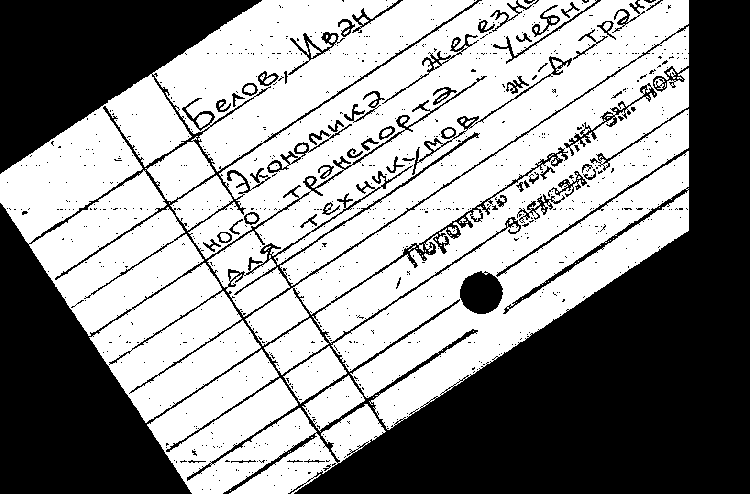 Белов, Иван
Экономика железно
ного транспорта. Учебни
для техникумов ж.-д. транс
Перечень изданий см. под
заглавием